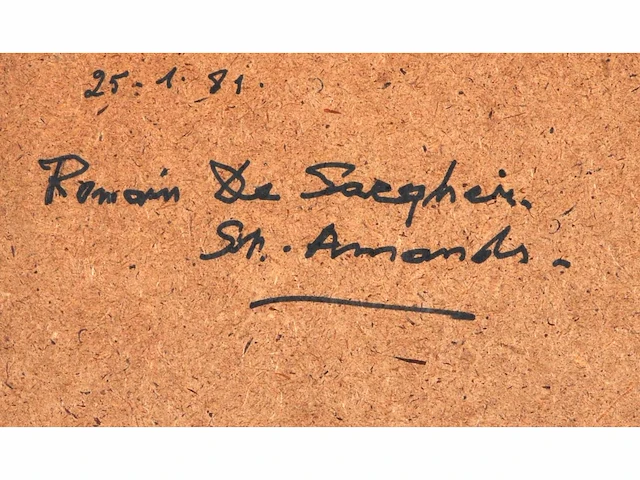 25-1-81.
Romain De Saegheir.
St.-Amands.-